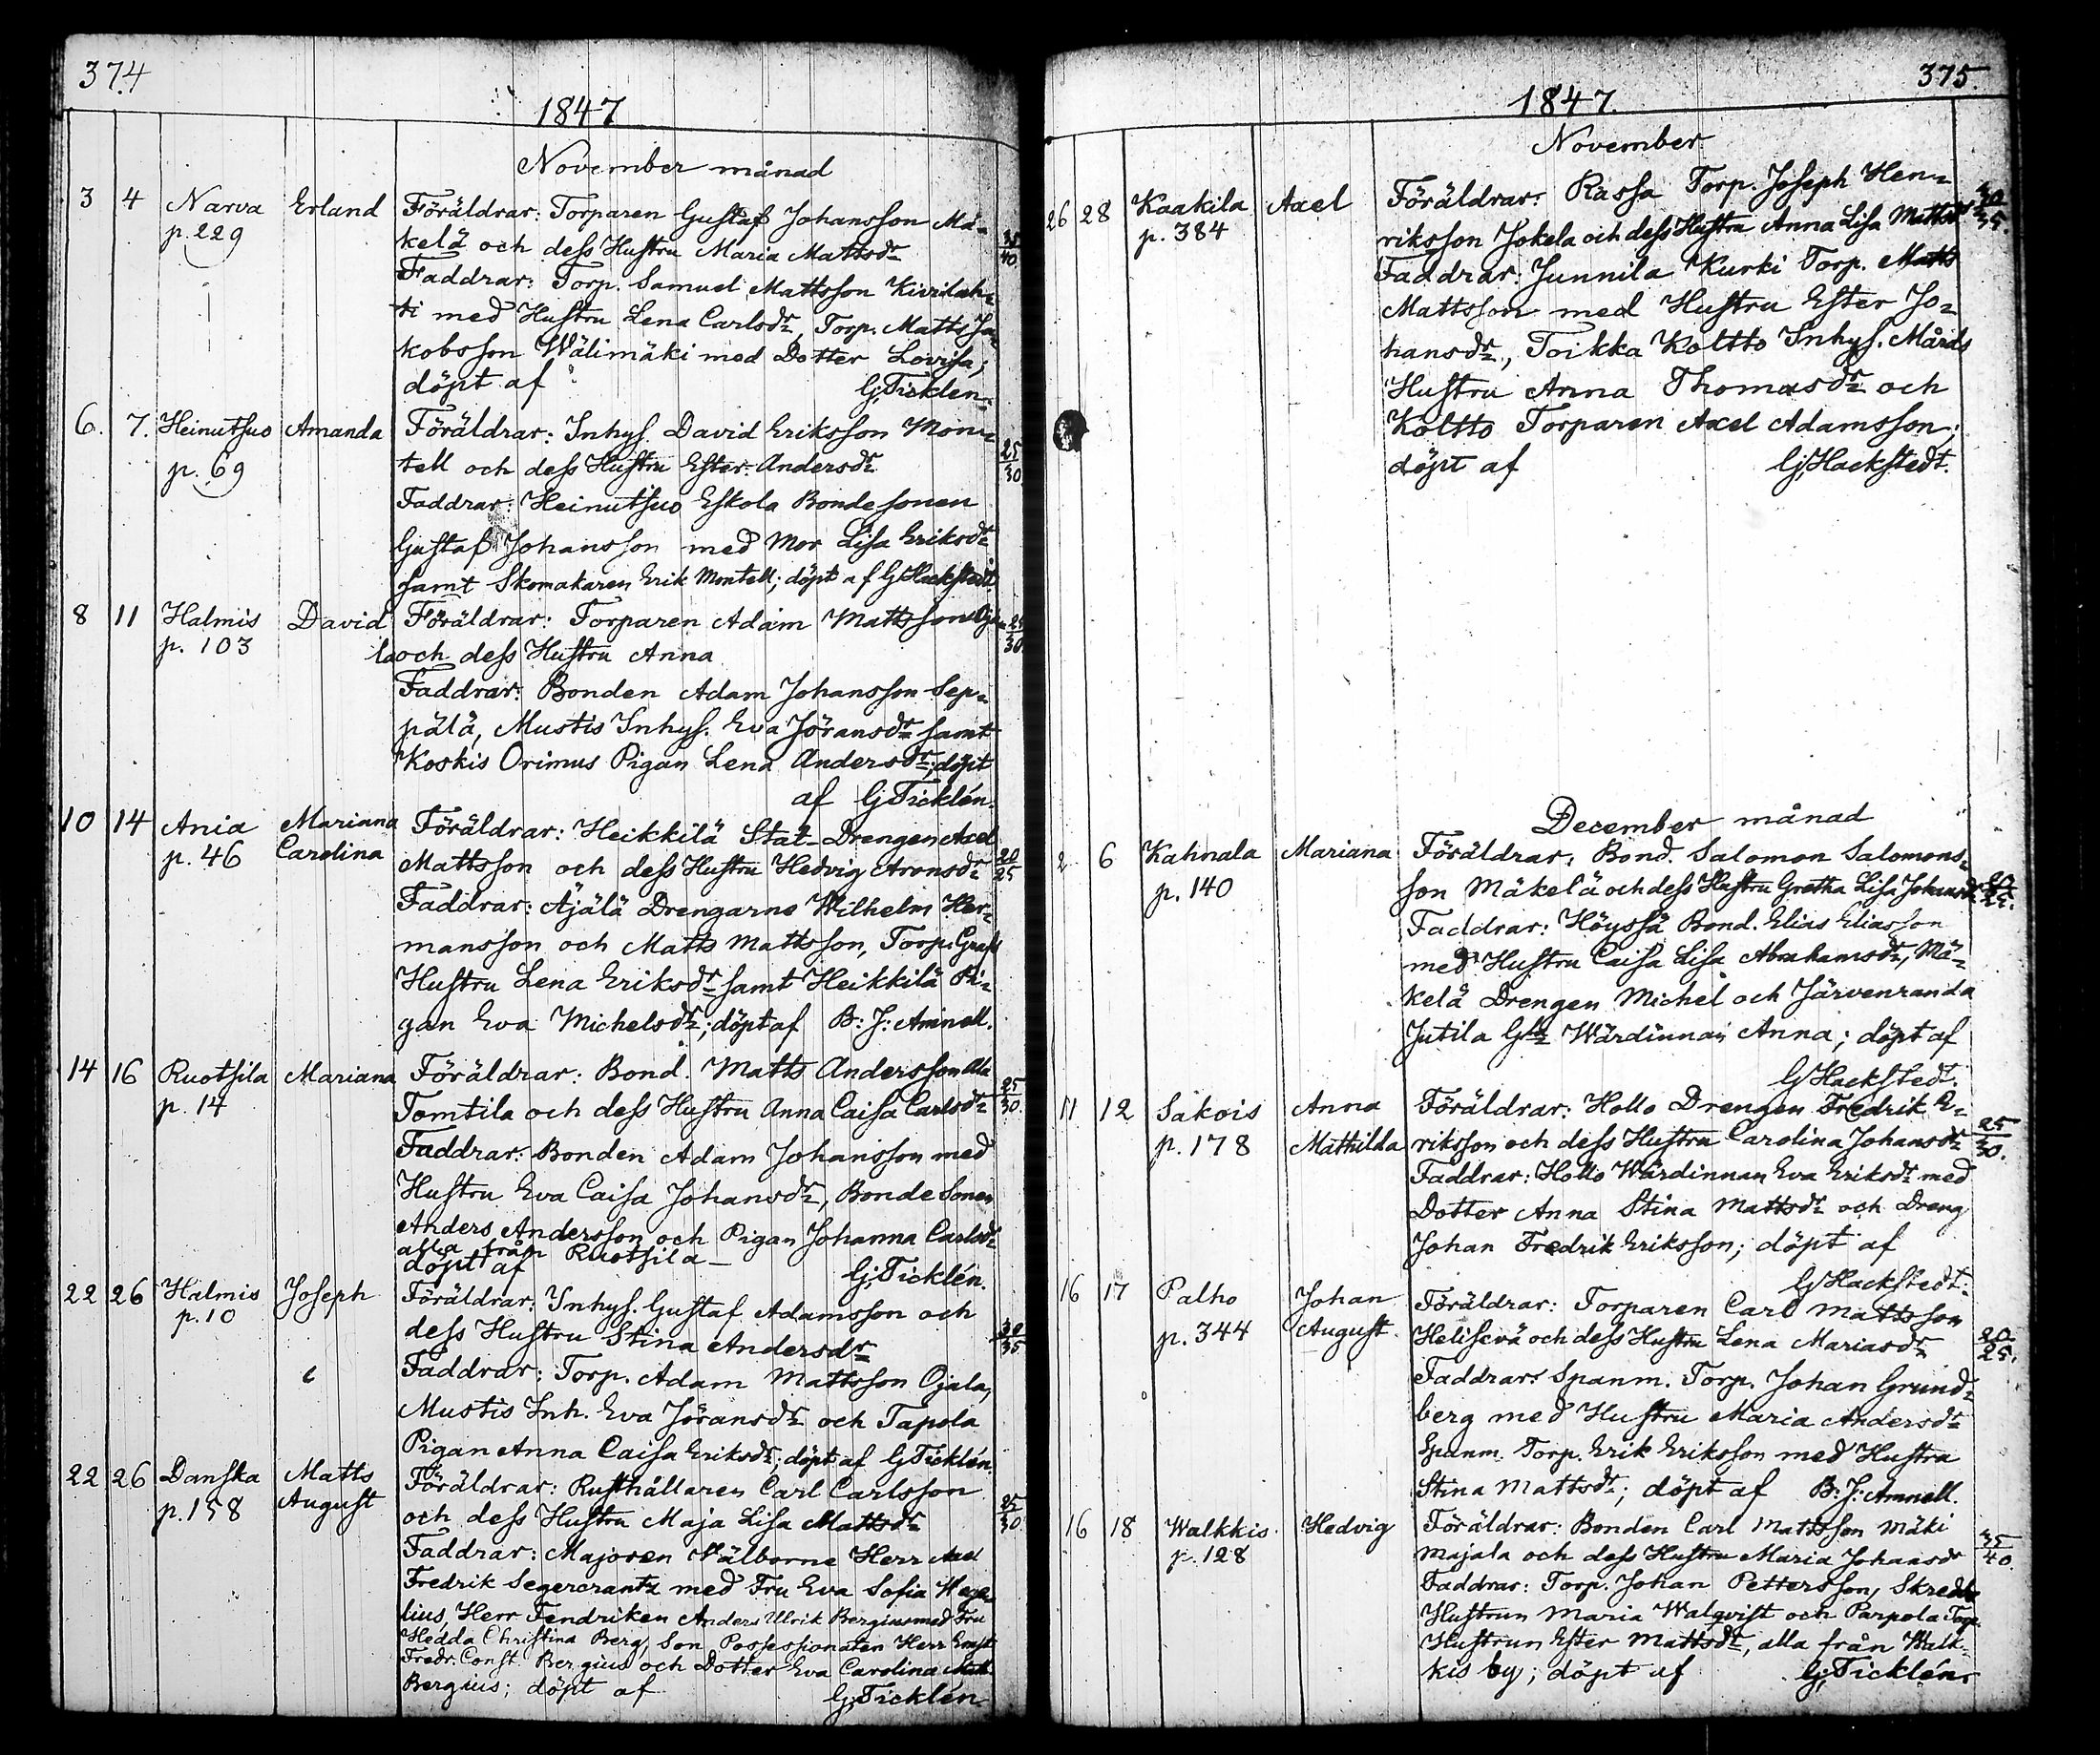 374
1847
November månad
3 4 Narva Erland Föräldrar: Torparen Gustaf Johansson Mä-
p. 229 kelä och dess Hustru Maria Mattsdr 35/40
Faddrar: Torp. Samuel Mattsson Kivilah-
ti med Hustru Lena Carlsdr, Torp. Matts Ja-
kobsson Wälimäki med Dotter Lovisa;
döpt af Gj Ticklen
6. 7. Heinutsuo Amanda Föräldrar: Inhys. David Eriksson Mon-
p. 69 tell och dess Hustru Ester Andersdr 25/30
Faddrar: Heinutsuo Eskola Bondesonen
Gustaf Johansson med Mor Lisa Eriksdr
samt Skomakaren Erik Montell; döpt af Gj Hackstedt.
8 11 Halmis David Föräldrar: Torparen Adam Mattsson Oja- 25/30
p. 103 la och dess Hustru Anna
Faddrar: Bonden Adam Johansson Sep-
pälä, Mustis Inhys. Eva Jöransdr samt
Koskis Orimus Pigan Lena Andersdr; döpt
af Gj Ticklén.
10 14 Ania Mariana Föräldrar: Heikkilä Stat-Drengen Axel
p. 46 Carolina Mattsson och dess Hustru Hedvig Aronsdr 20/25
Faddrar: Äjälä Drengarne Wilhelm Her-
mansson och Matts Mattsson, Torp. Grafs
Hustru Lena Eriksdr samt Heikkilä Pi-
gan Eva Michelsdr; döpt af B: J: Aminell.
14 16 Ruotsila Mariana Föräldrar: Bond. Matts Andersson Ala
p. 14 Tomtila och dess Hustru Anna Caisa Carlsdr 25/30
Faddrar: Bonden Adam Johansson med
Hustru Eva Caisa Johansdr, Bonde Sonen
Anders Andersson och Pigan Johanna Carlsdr
alla från Ruotsila —
döpt af Gj Ticklén.
22 26 Halmis Joseph Föräldrar: Inhys. Gustaf Adamsson och
p. 10 dess Hustru Stina Andersdr 30/35
Faddrar: Torp. Adam Mattsson Ojala,
Mustis Inh. Eva Jöransdr och Tapola
Pigan Anna Caisa Eriksdr; döpt af Gj Ticklén.
22 26 Danska Matts Föräldrar: Rusthållaren Carl Carlsson
p. 158 August och dess Hustru Maja Lisa Mattsdr 25/30
Faddrar: Majoren Välborne Herr Axel
Fredrik Segercrantz med Fru Eva Sofia
lius, Herr Fendriken Anders Ulrik Bergius med Fru
Hedda Christina Berg, Son Possessionaten Herr Ernst
Fredr. Const. Bergius och Dotter Eva Carolina
Bergius; döpt af Gj Ticklén
375.
1847.
November
26 28 Kaakila Axel Föräldrar: Rassa Torp. Joseph Hen-
p. 384 riksson Jokela och dess Hustru Anna Lisa Mattsdr 30/35.
Faddrar: Junnila Kurki Torp. Matts
Mattsson med Hustru Ester Jo-
hansdr, Toikka Koltto Inhys. Mårds
Hustru Anna Thomasdr och
Koltto Torparen Axel Adamsson;
döpt af Gj Hackstedt.
December månad
2 6 Kahnala Mariana Föräldrar: Bond. Salomon Salomons-
p. 140 son Mäkelä och dess Hustru Gretha Lisa Johansdr
Faddrar: Höyssä Bond. Elias Eliasson
med Hustru Caisa Lisa Abrahamsdr, Mä-
kelä Drengen Michel och Järvenranda
Jutila Gla Wärdinnan Anna; döpt af
Gj Hackstedt.
11 12 Sakois Anna Föräldrar: Hollo Drengen Fredrik E-
p. 178 Mathilda riksson och dess Hustru Carolina Johansdr 25/30.
Faddrar: Hollo Wärdinnan Eva Eriksdr med
Dotter Anna Stina Mattsdr och Dreng
Johan Fredrik Eriksson; döpt af
Gj Hackstedt.
16 17 Palho Johan Föräldrar: Torparen Carl Mattsson
p. 344 August Helisevä och dess Hustru Lena Mariasdr 20/25.
Faddrar: Spanm. Torp. Johan Grund-
berg med Hustru Maria Andersdr
Spanm. Torp. Erik Eriksson med Hustru
Stina Mattsdr; döpt af B: J: Aminell.
16 18 Walkkis Hedvig Föräldrar: Bonden Carl Mattsson Mäki
p. 128 Majala och dess Hustru Maria Johansdr 35/40.
Faddrar: Torp. Johan Pettersson, Skredd.
Hustrun Maria Walqvist och Parpola Torp.
Hustrun Ester Mattsdr, alla från Walk-
kis by; döpt af Gj Ticklén.